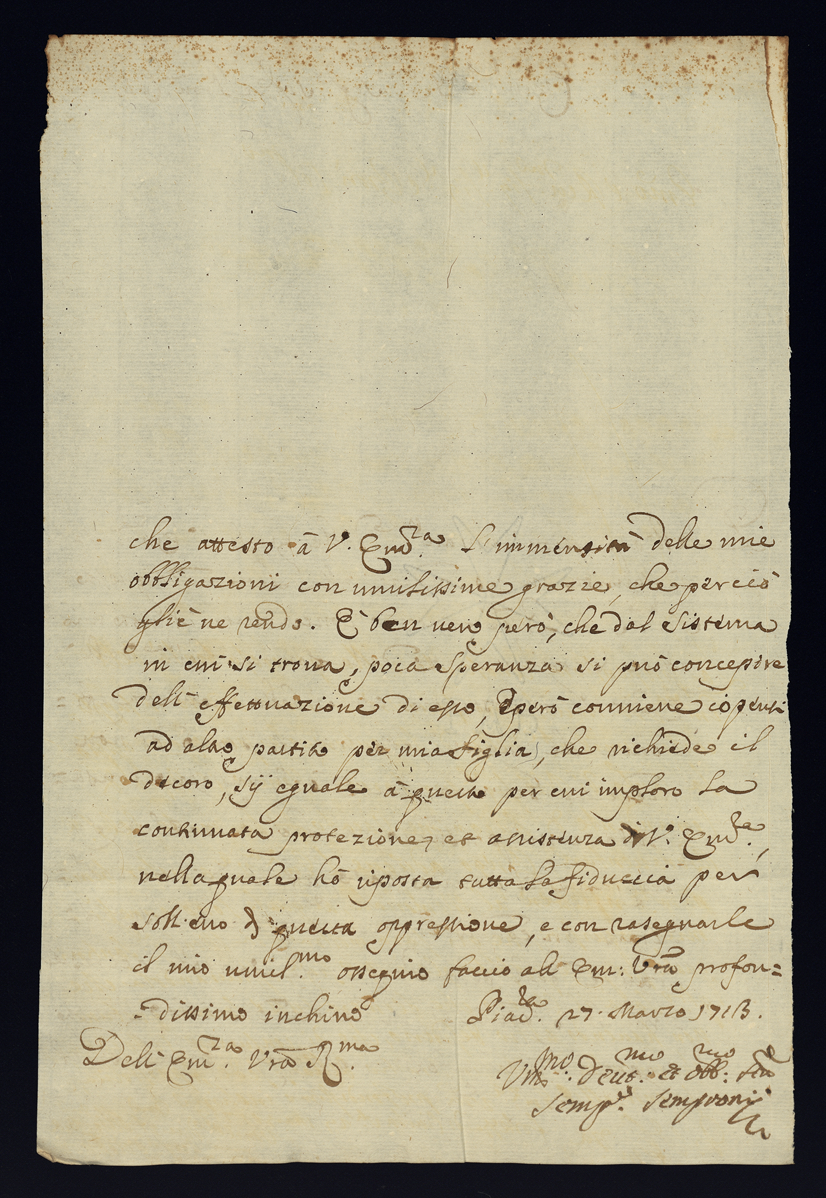 che attesto à V. Em.za l'immensità delle mie
obbligazioni con umilissime grazie, che perciò
gliè ne rendo. È ben vero però, che dal sistema
in cui si trova, poca speranza si può concepire
dell'effettuazione di esso, e però conviene io pensi
ad altro partito per mia figlia, che richiede il
decoro, sij eguale à questo per cui imploro la
continuata protezione, et assistenza di V. Em.za,
nella quale hò riposta tutta la fiduccia per
sollievo di questa oppressione, e con rasegnarle
il mio umil.mo ossequio faccio all'Em: Vrã profon=
=dissimo inchino
Piac.za 27. Marzo 1713.
Dell'Em.za Vrã R.ma
Um.mo Deuot.mo et Obb:mo